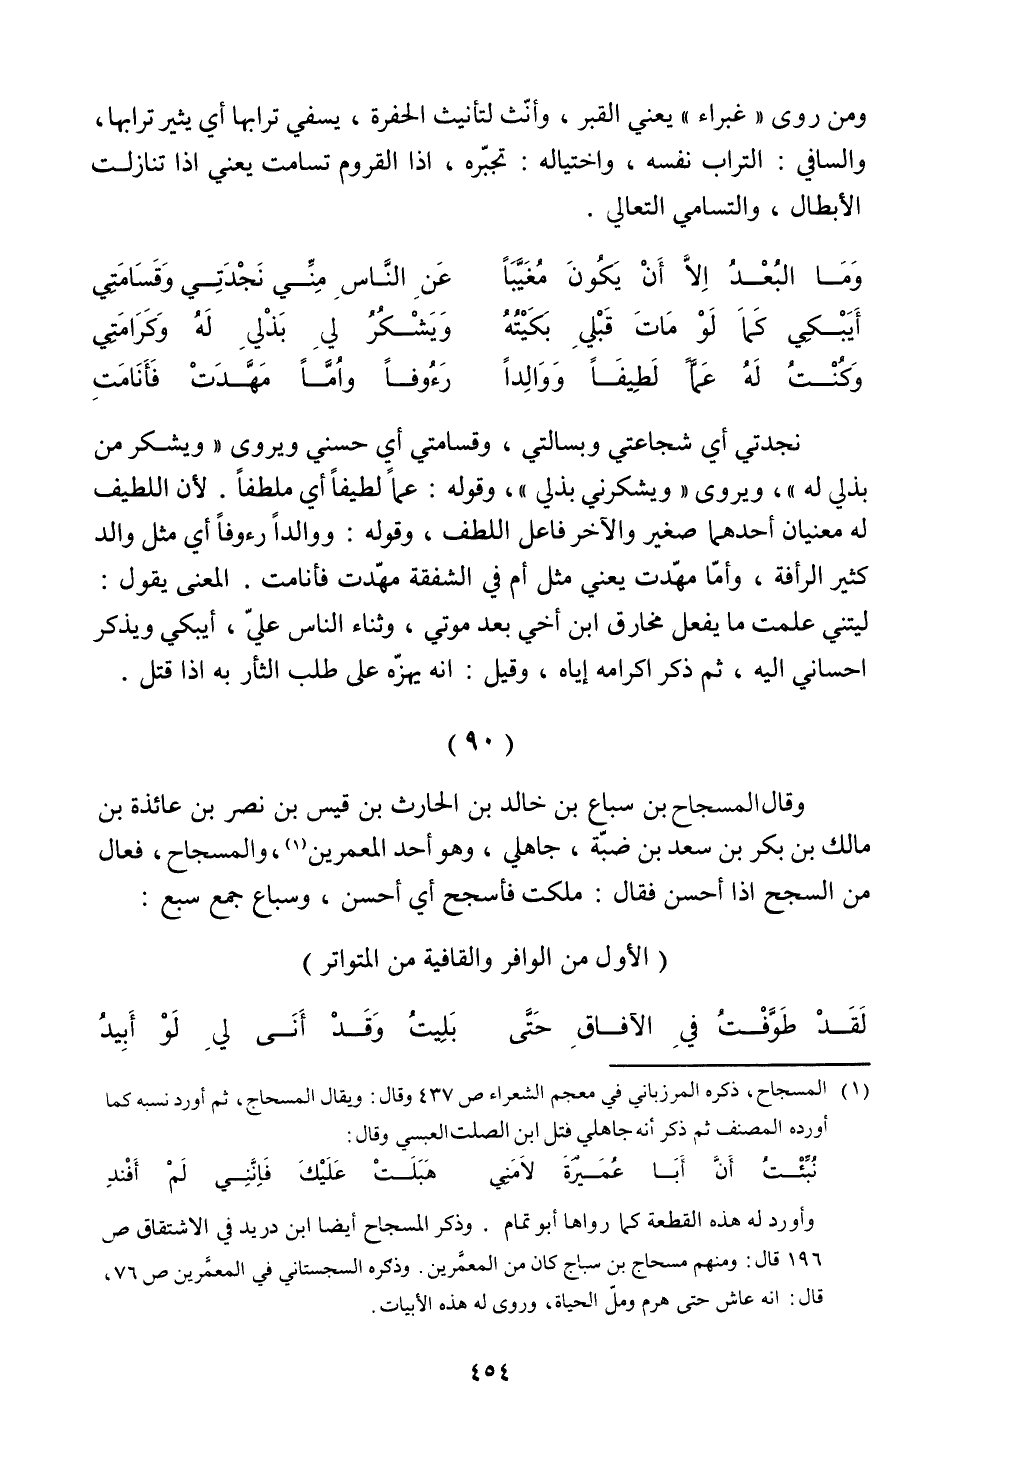 ومن روى « غبراء » يعني القبر ، وأنّث لتأنيث الحفرة ، يسفي ترابها أي يثير ترابها،
والسافي : التراب نفسه ، واختياله : تجبّره ، اذا القروم تسامت يعني اذا تنازلت
الأبطال ، والتسامي التعالي .
وَمَـا البُعْـدُ اِلاَّ أَنْ يَكُونَ مُغَيَّبَاً عَنِ النَّاسِ مِنِّـي نَجْدَتِـي وَقَسَامَتِي
أَيَبْـكِي كَمَا لَوْ مَاتَ قَبْلِي بَكَيْتُهُ وَيَشْـكُرُ لِي بَذْلِي لَهُ وَكَرَامَتِي
وَكُنْـتُ لَهُ عَمَّاً لَطِيفَـاً وَوَالِداً رَءُوفـاً وأُمَّـاً مَهَّـدَتْ فَأَنَامَتِ
نجدتي أي شجاعتي وبسالتي ، وقسامتي أي حسني ويروى « ويشكر من
بذلي له »، ويروى « ويشكرني بذلي »، وقوله : عماً لطيفاً أي ملطفاً . لأن اللطيف
له معنيان أحدهما صغير والآخر فاعل اللطف ، وقوله : ووالداً رءوفاً أي مثل والد
كثير الرأفة ، وأمّا مهّدت يعني مثل أم في الشفقة مهّدت فأنامت . المعنى يقول :
ليتني علمت ما يفعل مخارق ابن أخي بعد موتي ، وثناء الناس عليّ ، أيبكي ويذكر
احساني اليه ، ثم ذكر اكرامه إياه ، وقيل : انه يهزّه على طلب الثأر به اذا قتل .
( ٩٠ )
وقال المسجاح بن سباع بن خالد بن الحارث بن قيس بن نصر بن عائذة بن
مالك بن بكر بن سعد بن ضبّة ، جاهلي ، وهو أحد المعمرين(١)، والمسجاح ، فعال
من السجح اذا أحسن فقال : ملكت فأسجح أي أحسن ، وسباع جمع سبع :
( الأول من الوافر والقافية من المتواتر )
لَقَـدْ طَوَّفْـتُ فِي الآفـاقِ حَتَّى بَلِيتُ وَقَـدْ أَنَـى لِي لَوْ أَبِيدُ
(١) المسجاح، ذكره المرزباني في معجم الشعراء ص ٤٣٧ وقال: ويقال المسحاج، ثم أورد نسبه كما
أورده المصنف ثم ذكر أنه جاهلي قتل ابن الصلت العبسي وقال:
نُبِّئْـتُ أَنَّ أَبَـا عُمَـيْرَةَ لاَمَنِي هَبَلَـتْ عَلَيْكَ فَإِنَّنِـي لَمْ أَفْندِ
وأورد له هذه القطعة كما رواها أبو تمام . وذكر المسجاح أيضا ابن دريد في الاشتقاق ص
١٩٦ قال: ومنهم مسحاج بن سباج كان من المعمَّرين. وذكره السجستاني في المعمَّرين ص ٧٦،
قال: انه عاش حتى هرم وملّ الحياة، وروى له هذه الأبيات.
٤٥٤